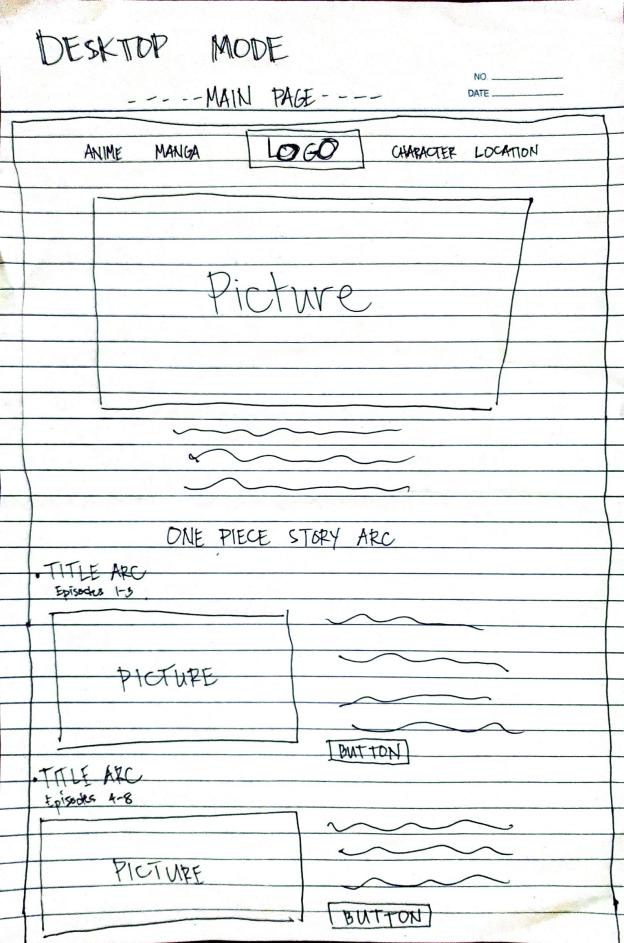 DESKTOP MODE
NO.
DATE
-----MAIN PAGE----
ANIME MANGA LOGO CHARACTER LOCATION
Picture
ONE PIECE STORY ARC
TITLE ARC
Episodes 1-3
PICTURE
BUTTON
TITLE ARC
Episodes 4-8
PICTURE
BUTTON